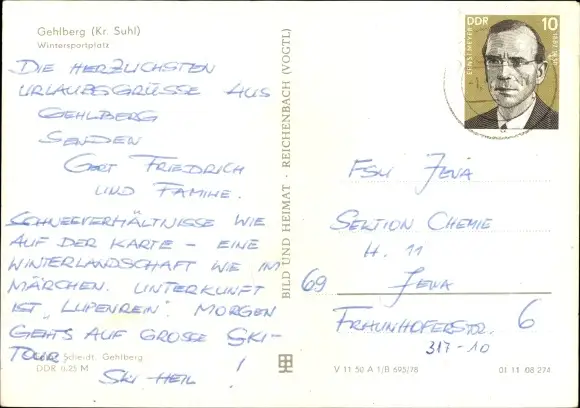 Gehlberg (Kr. Suhl)
Wintersportplatz
DIE HERZLICHSTEN
URLAUBSGRÜSSE AUS
GEHLBERG
SENDEN
GERT FRIEDRICH
UND FAMILIE.
SCHNEEVERHÄLTNISSE WIE
AUF DER KARTE – EINE
WINTERLANDSCHAFT WIE IM
MÄRCHEN. UNTERKUNFT
IST „LUPENREIN". MORGEN
GEHTS AUF GROSSE SKI-
TOUR !
Scheidt, Gehlberg
DDR 0,25 M
SKI-HEIL
BILD UND HEIMAT · REICHENBACH (VOGTL)
DDR 10
ERNST MEYER
FSU JENA
SEKTION CHEMIE
H. 11
69 JENA
FRAUNHOFERSTR. 6
317-10
V 11 50 A 1/B 695/78 01 11 08 274